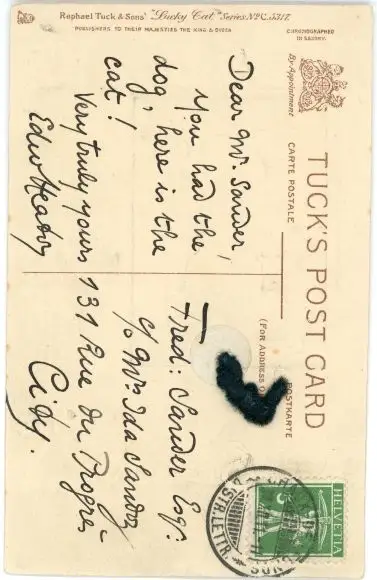 Raphael Tuck & Sons' "Lucky Cat" Series Nº C. 5317.
PUBLISHERS TO THEIR MAJESTIES THE KING & QUEEN
CHROMOGRAPHED
IN SAXONY.
By Appointment
TUCK'S POST CARD
CARTE POSTALE
POSTKARTE
(FOR ADDRESS O
Dear Mr. Sander,
you had the
dog, here is the
cat!
Very truly yours
Fred: Sander Esqr.
c/o Mrs Ida Sandoz
131 Rue du Progrès
City.
HELVETIA
5